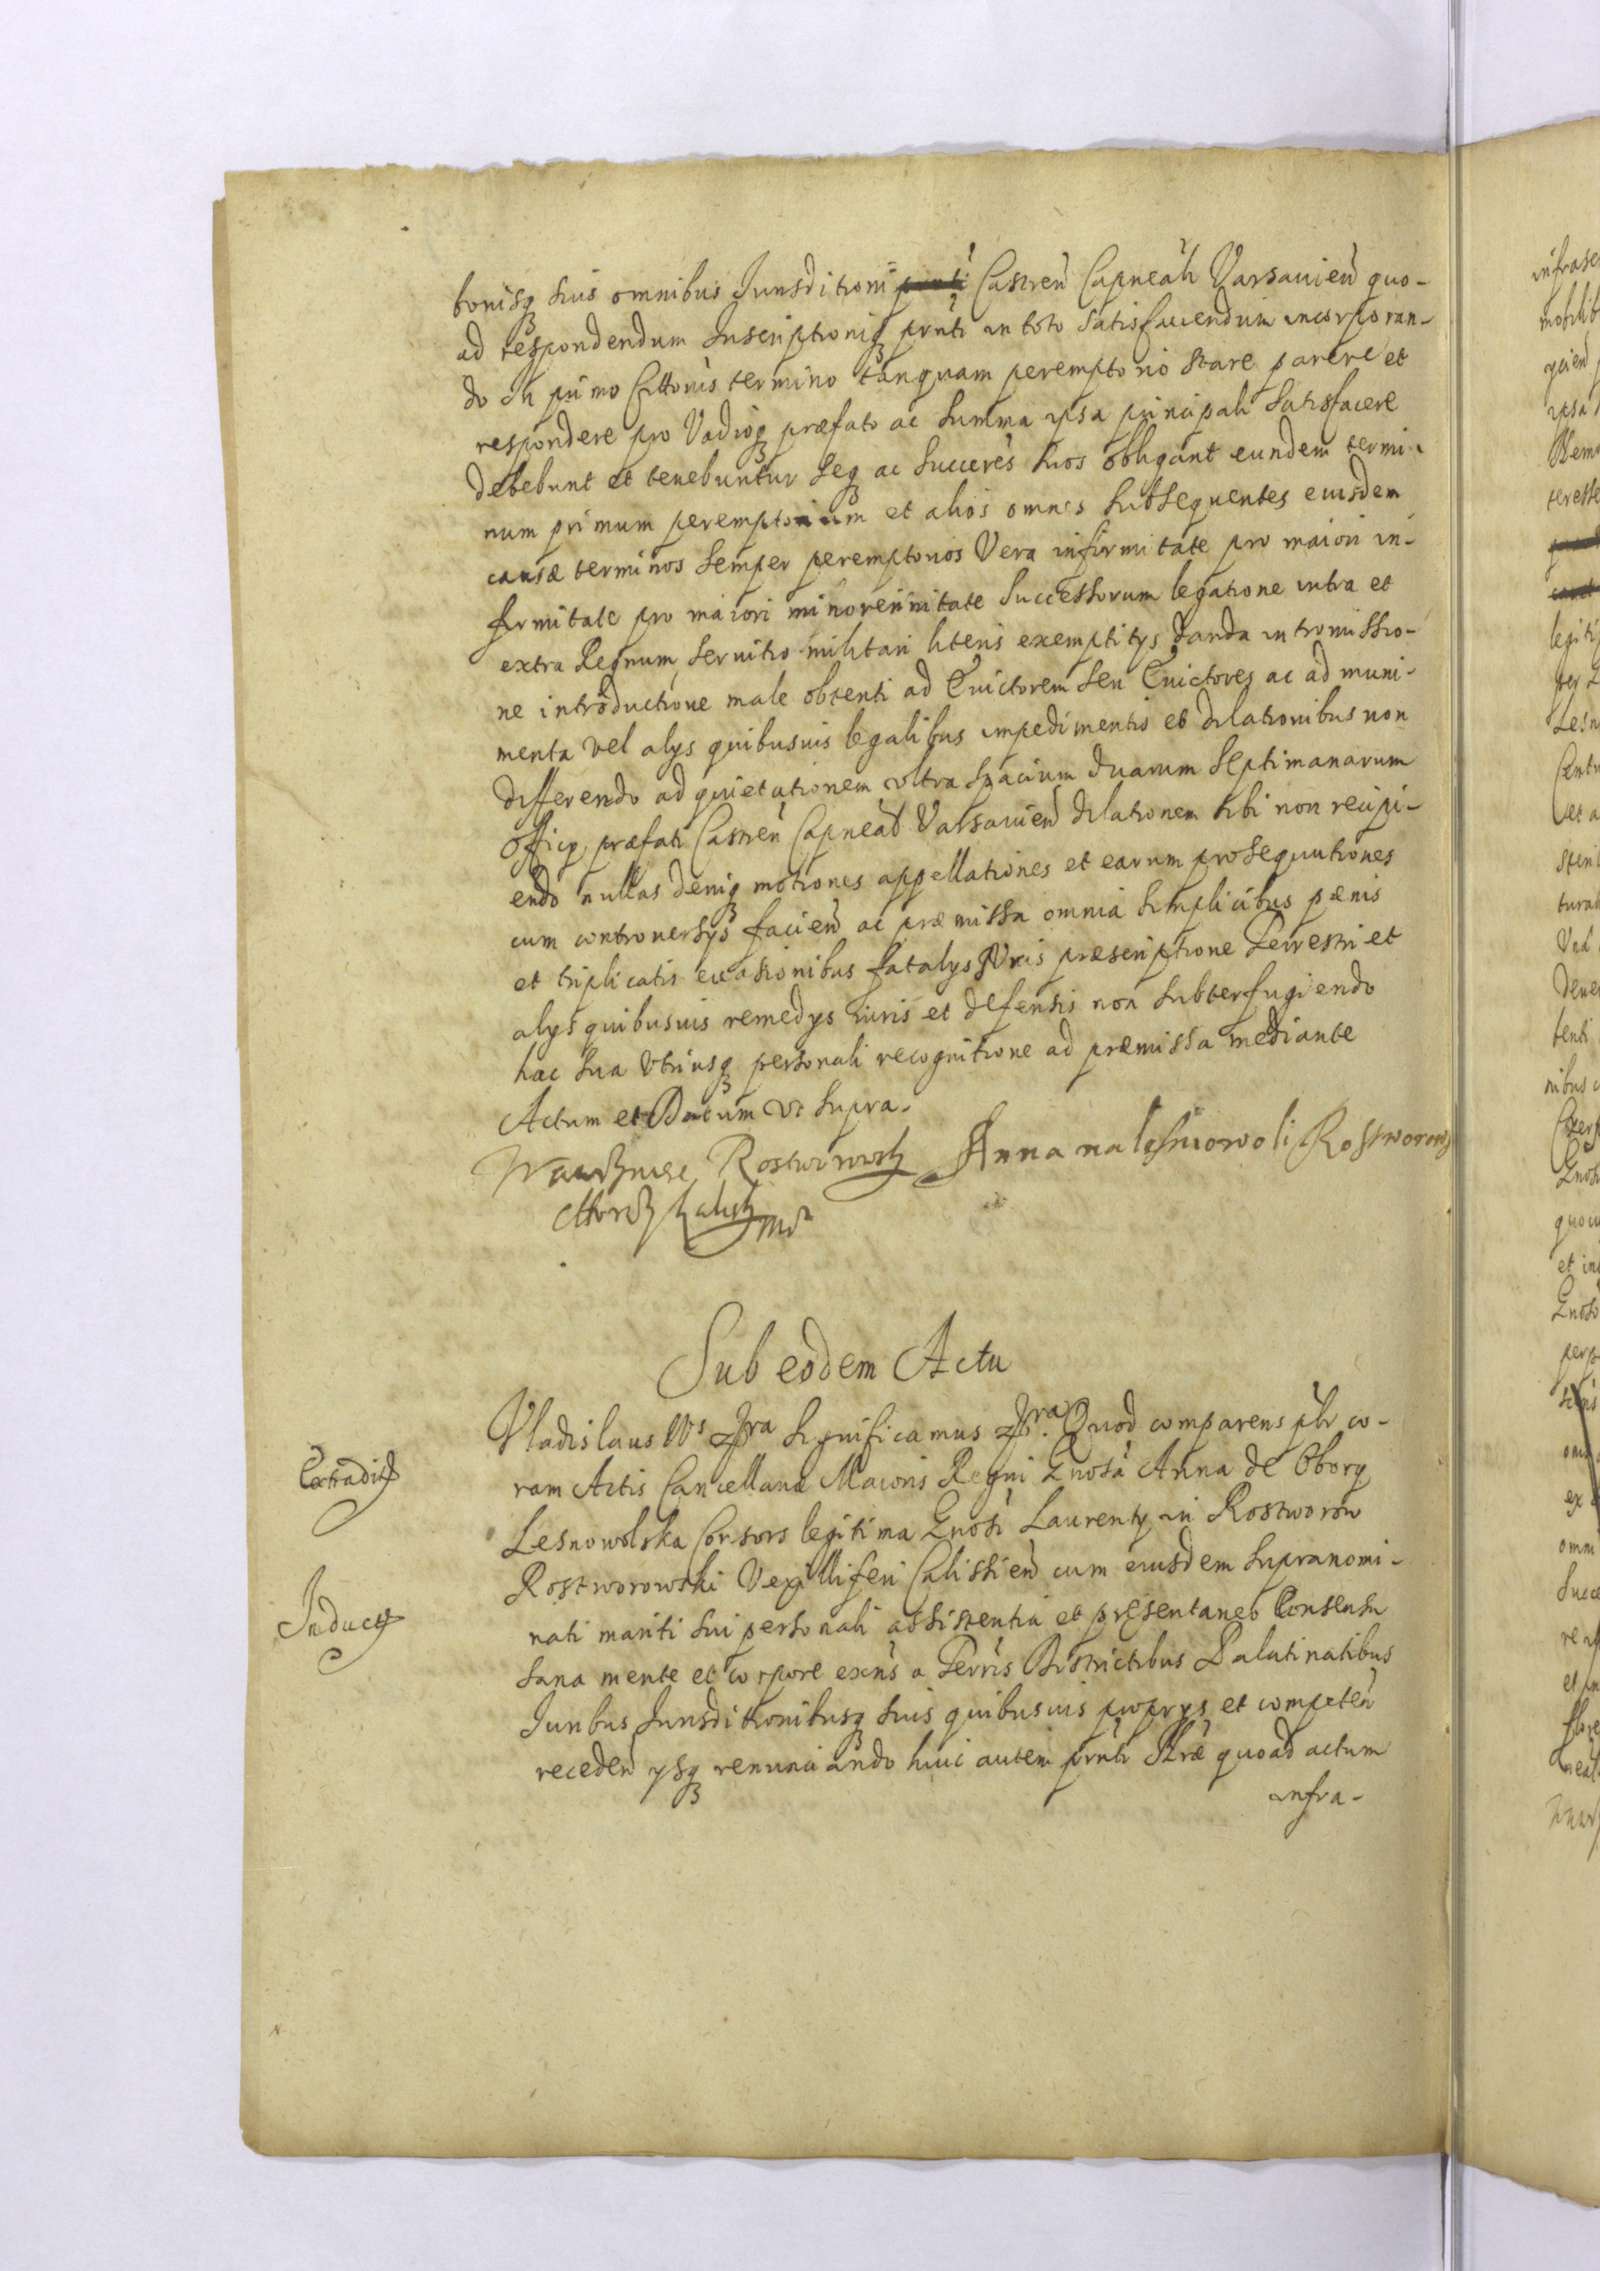 bonisq suis omnibus Jurisditioni prnti Castren Capneali Varsavien quo-
ad respondendum Inscriptioniq prnti in toto satisfaciendum incorporan-
do In primo Cittonis termino tanquam peremptorio stare parere et
respondere pro Vadioq præfato ac summa ipsa principali satisfacere
debebunt et tenebuntur seq ac succeres suos obligant eundem termi-
num primum peremptorium et alios omnes subsequentes eiusdem
causæ terminos semper peremptorios Vera infirmitate pro maiori in-
firmitate pro maiori minorennitate successorum legatione intra et
extra Regnum seruitio militari literis exemptitys danda intromissio-
ne introductione male obtenti ad Euictorem seu Euictores ac ad muni-
menta vel alys quibusuis legalibus impedimentis et dilationibus non
differendo ad quietationem vltra spacium duarum septimanarum
officy præfati Castren Capneal Varsauien dilationem sibi non recipi-
endo nullas deniq motiones appellationes et earum prosequutiones
cum controuersys facien ac præmissa omnia simplicibus pœnis
et triplicatis euasionibus fatalys Iuris præscriptione Terrestri et
alys quibusuis remedys iuris et defensis non subterfugiendo
hac sua vtriusq personali recognitione ad præmissa mediante
Actum et Datum vt supra.
Wawrzyniec Rostworowsky Anna na leśniowoli Rostworows
Chorąży kalisky mp
Sub eodem Actu
Vladislaus IVs Pra significamus Pra. Quod comparens plr co-
ram Actis Cancellariæ Maioris Regni Gnosa Anna de Obory
Lesnowolska Consors legitima Gnosi Laurenty in Rostworow
Rostworowski Vexilliferi Calissien cum eiusdem supranomi-
nati mariti sui personali assistentia et præsentaneo Consensu
sana mente et corpore exens a Terris Districtibus Palatinatibus
Iuribus Iurisditionibusq suis quibusuis proprys et competen
receden ysq renunciando huic autem prnti Stræ quoad actum
infra-
Extradit
Induct